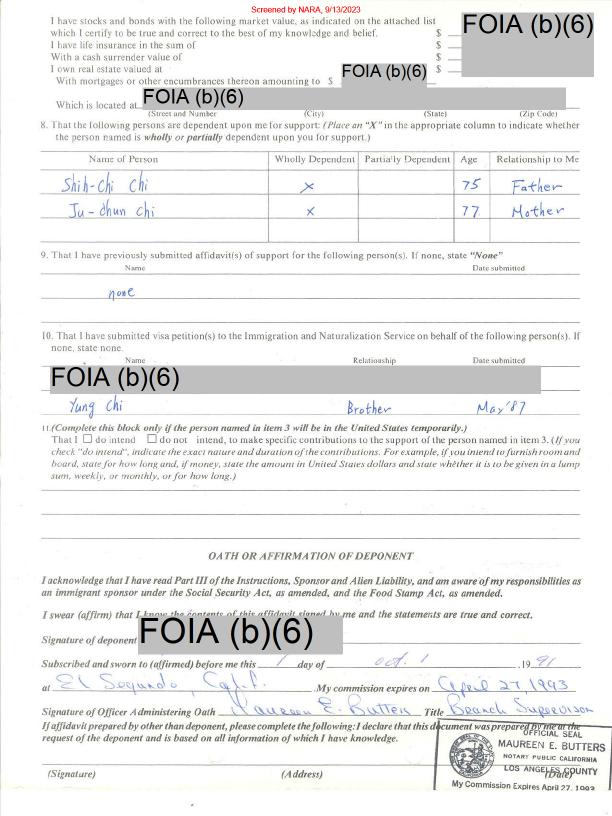 Screened by NARA, 9/13/2023
I have stocks and bonds with the following market value, as indicated on the attached list
which I certify to be true and correct to the best of my knowledge and belief. $
FOIA (b)(6)
I have life insurance in the sum of $
With a cash surrender value of $
I own real estate valued at $
With mortgages or other encumbrances thereon amounting to $ FOIA (b)(6)
Which is located at FOIA (b)(6)
(Street and Number) (City) (State) (Zip Code)
8. That the following persons are dependent upon me for support: (Place an "X" in the appropriate column to indicate whether
the person named is wholly or partially dependent upon you for support.)
Name of Person Wholly Dependent Partially Dependent Age Relationship to Me
Shih-Chi Chi X 75 Father
Ju-dhun Chi X 77 Mother
9. That I have previously submitted affidavit(s) of support for the following person(s). If none, state "None"
Name Date submitted
none
10. That I have submitted visa petition(s) to the Immigration and Naturalization Service on behalf of the following person(s). If
none, state none.
Name Relationship Date submitted
FOIA (b)(6)
Yung Chi Brother May '87
11.(Complete this block only if the person named in item 3 will be in the United States temporarily.)
That I ☐ do intend ☐ do not intend, to make specific contributions to the support of the person named in item 3. (If you
check "do intend", indicate the exact nature and duration of the contributions. For example, if you intend to furnish room and
board, state for how long and, if money, state the amount in United States dollars and state whether it is to be given in a lump
sum, weekly, or monthly, or for how long.)
OATH OR AFFIRMATION OF DEPONENT
I acknowledge that I have read Part III of the Instructions, Sponsor and Alien Liability, and am aware of my responsibilities as
an immigrant sponsor under the Social Security Act, as amended, and the Food Stamp Act, as amended.
I swear (affirm) that I know the contents of this affidavit signed by me and the statements are true and correct.
Signature of deponent FOIA (b)(6)
Subscribed and sworn to (affirmed) before me this 1 day of Oct. 1 , 19 91
at El Segundo, Calif. My commission expires on April 27 1993
Signature of Officer Administering Oath Maureen E. Butters Title Branch Supervisor
If affidavit prepared by other than deponent, please complete the following: I declare that this document was prepared by me at the
request of the deponent and is based on all information of which I have knowledge.
OFFICIAL SEAL
MAUREEN E. BUTTERS
NOTARY PUBLIC CALIFORNIA
LOS ANGELES COUNTY
My Commission Expires April 27, 1993
(Signature) (Address) (Date)